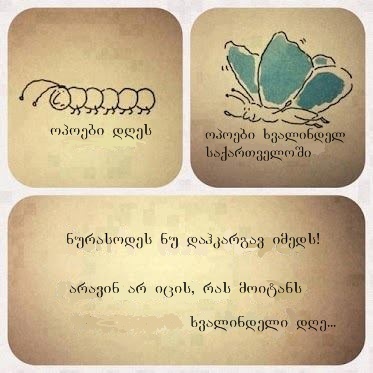 ოპოები დღეს
ოპოები ხვალინდელ
საქართველოში
ნურასოდეს ნუ დაჰკარგავ იმედს!
არავინ არ იცის, რას მოიტანს
ხვალინდელი დღე...